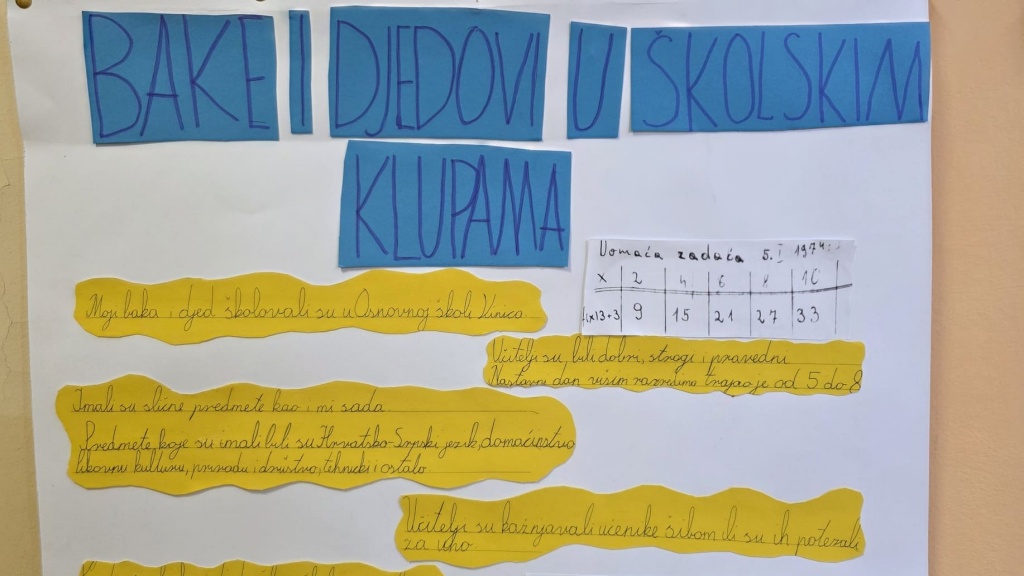 BAKE I DJEDOVI U ŠKOLSKIM
KLUPAMA
Domaća zadaća 5. I 1974.
x 2 4 6 8 10
9 15 21 27 33
Moji baka i djed školovali su u Osnovnoj školi Vinica.
Učitelji su bili dobri, strogi i pravedni
Nastavni dan višim razredima trajao je od 5 do 8
Imali su slične predmete kao i mi sada
Predmete koje su imali bili su Hrvatsko-Srpski jezik, domaćinstvo
likovnu kulturu, prirodu i društvo, tehnički i ostalo
Učitelji su kažnjavali učenike šibom ili su ih potezali
za uho.